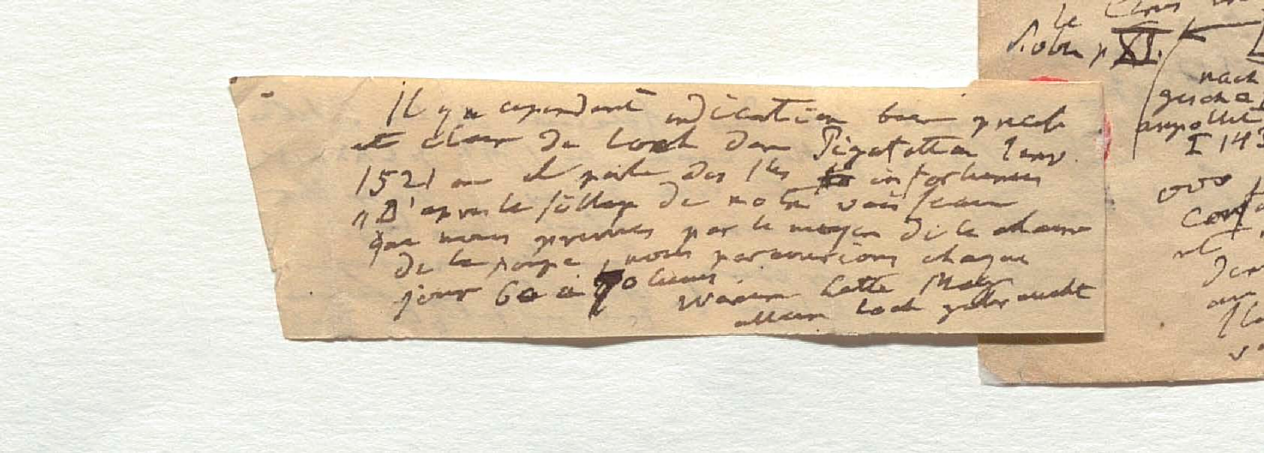 Il y a cependant indication bien precise
et claire du Loch dans Pigafetta Janv.
1521 où il parle des îles infortunées
„D'après le sillage de notre vaisseau
que nous prenions par le moyen de la chaine
de la poupe, nous parcourions chaque
jour 60 à 70 lieues. Warum hatte Mag.
allein Loch gebraucht
le
XI.
nach
I 143
ovo